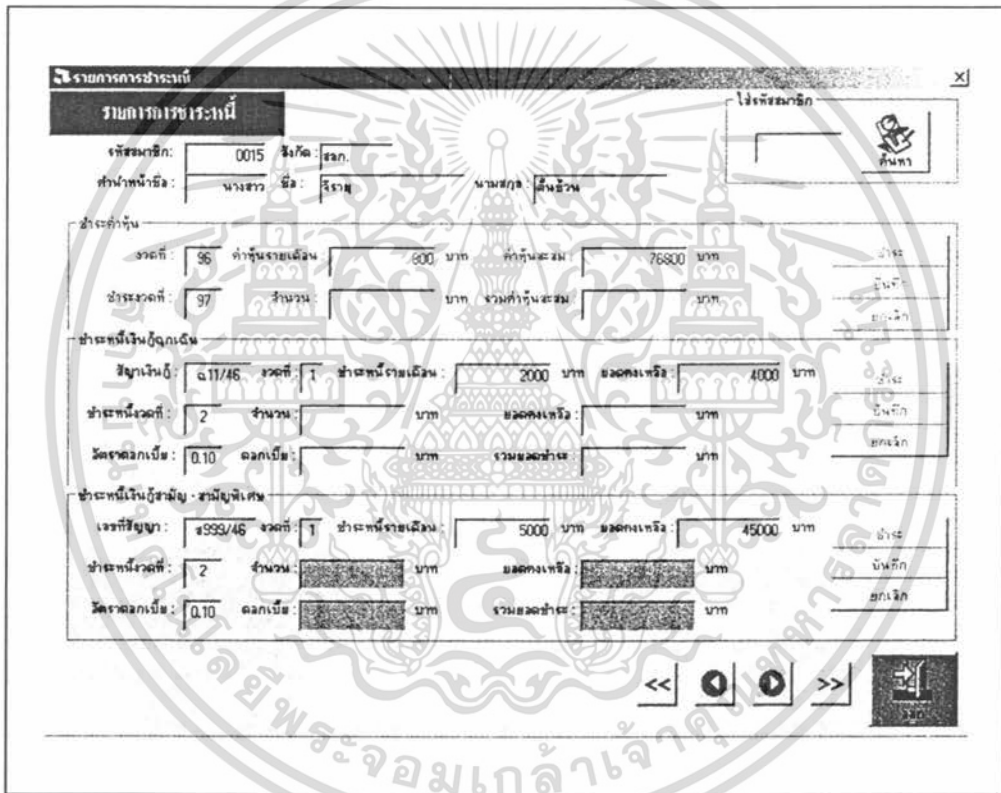 รายการการชำระหนี้
รายการการชำระหนี้
ใส่รหัสสมาชิก
ค้นหา
รหัสสมาชิก: 0015 สังกัด: สอก.
คำนำหน้าชื่อ: นางสาว ชื่อ: จิรายุ นามสกุล:
ชำระค่าหุ้น
งวดที่: 96 ค่าหุ้นรายเดือน 800 บาท ค่าหุ้นสะสม: 76800 บาท ชำระ
ชำระงวดที่: 97 จำนวน: บาท รวมค่าหุ้นสะสม: บาท บันทึก
ยกเลิก
ชำระหนี้เงินกู้ฉุกเฉิน
สัญญาเงินกู้: ฉ11/46 งวดที่: 1 ชำระหนี้รายเดือน: 2000 บาท ยอดคงเหลือ: 4000 บาท ชำระ
ชำระหนี้งวดที่: 2 จำนวน: บาท ยอดคงเหลือ: บาท บันทึก
อัตราดอกเบี้ย: 0.10 ดอกเบี้ย: บาท รวมยอดชำระ: บาท ยกเลิก
ชำระหนี้เงินกู้สามัญ - สามัญพิเศษ
เลขที่สัญญา: ส999/46 งวดที่: 1 ชำระหนี้รายเดือน: 5000 บาท ยอดคงเหลือ: 45000 บาท ชำระ
ชำระหนี้งวดที่: 2 จำนวน: บาท ยอดคงเหลือ: บาท บันทึก
อัตราดอกเบี้ย: 0.10 ดอกเบี้ย: บาท รวมยอดชำระ: บาท ยกเลิก
<< >>
ออก